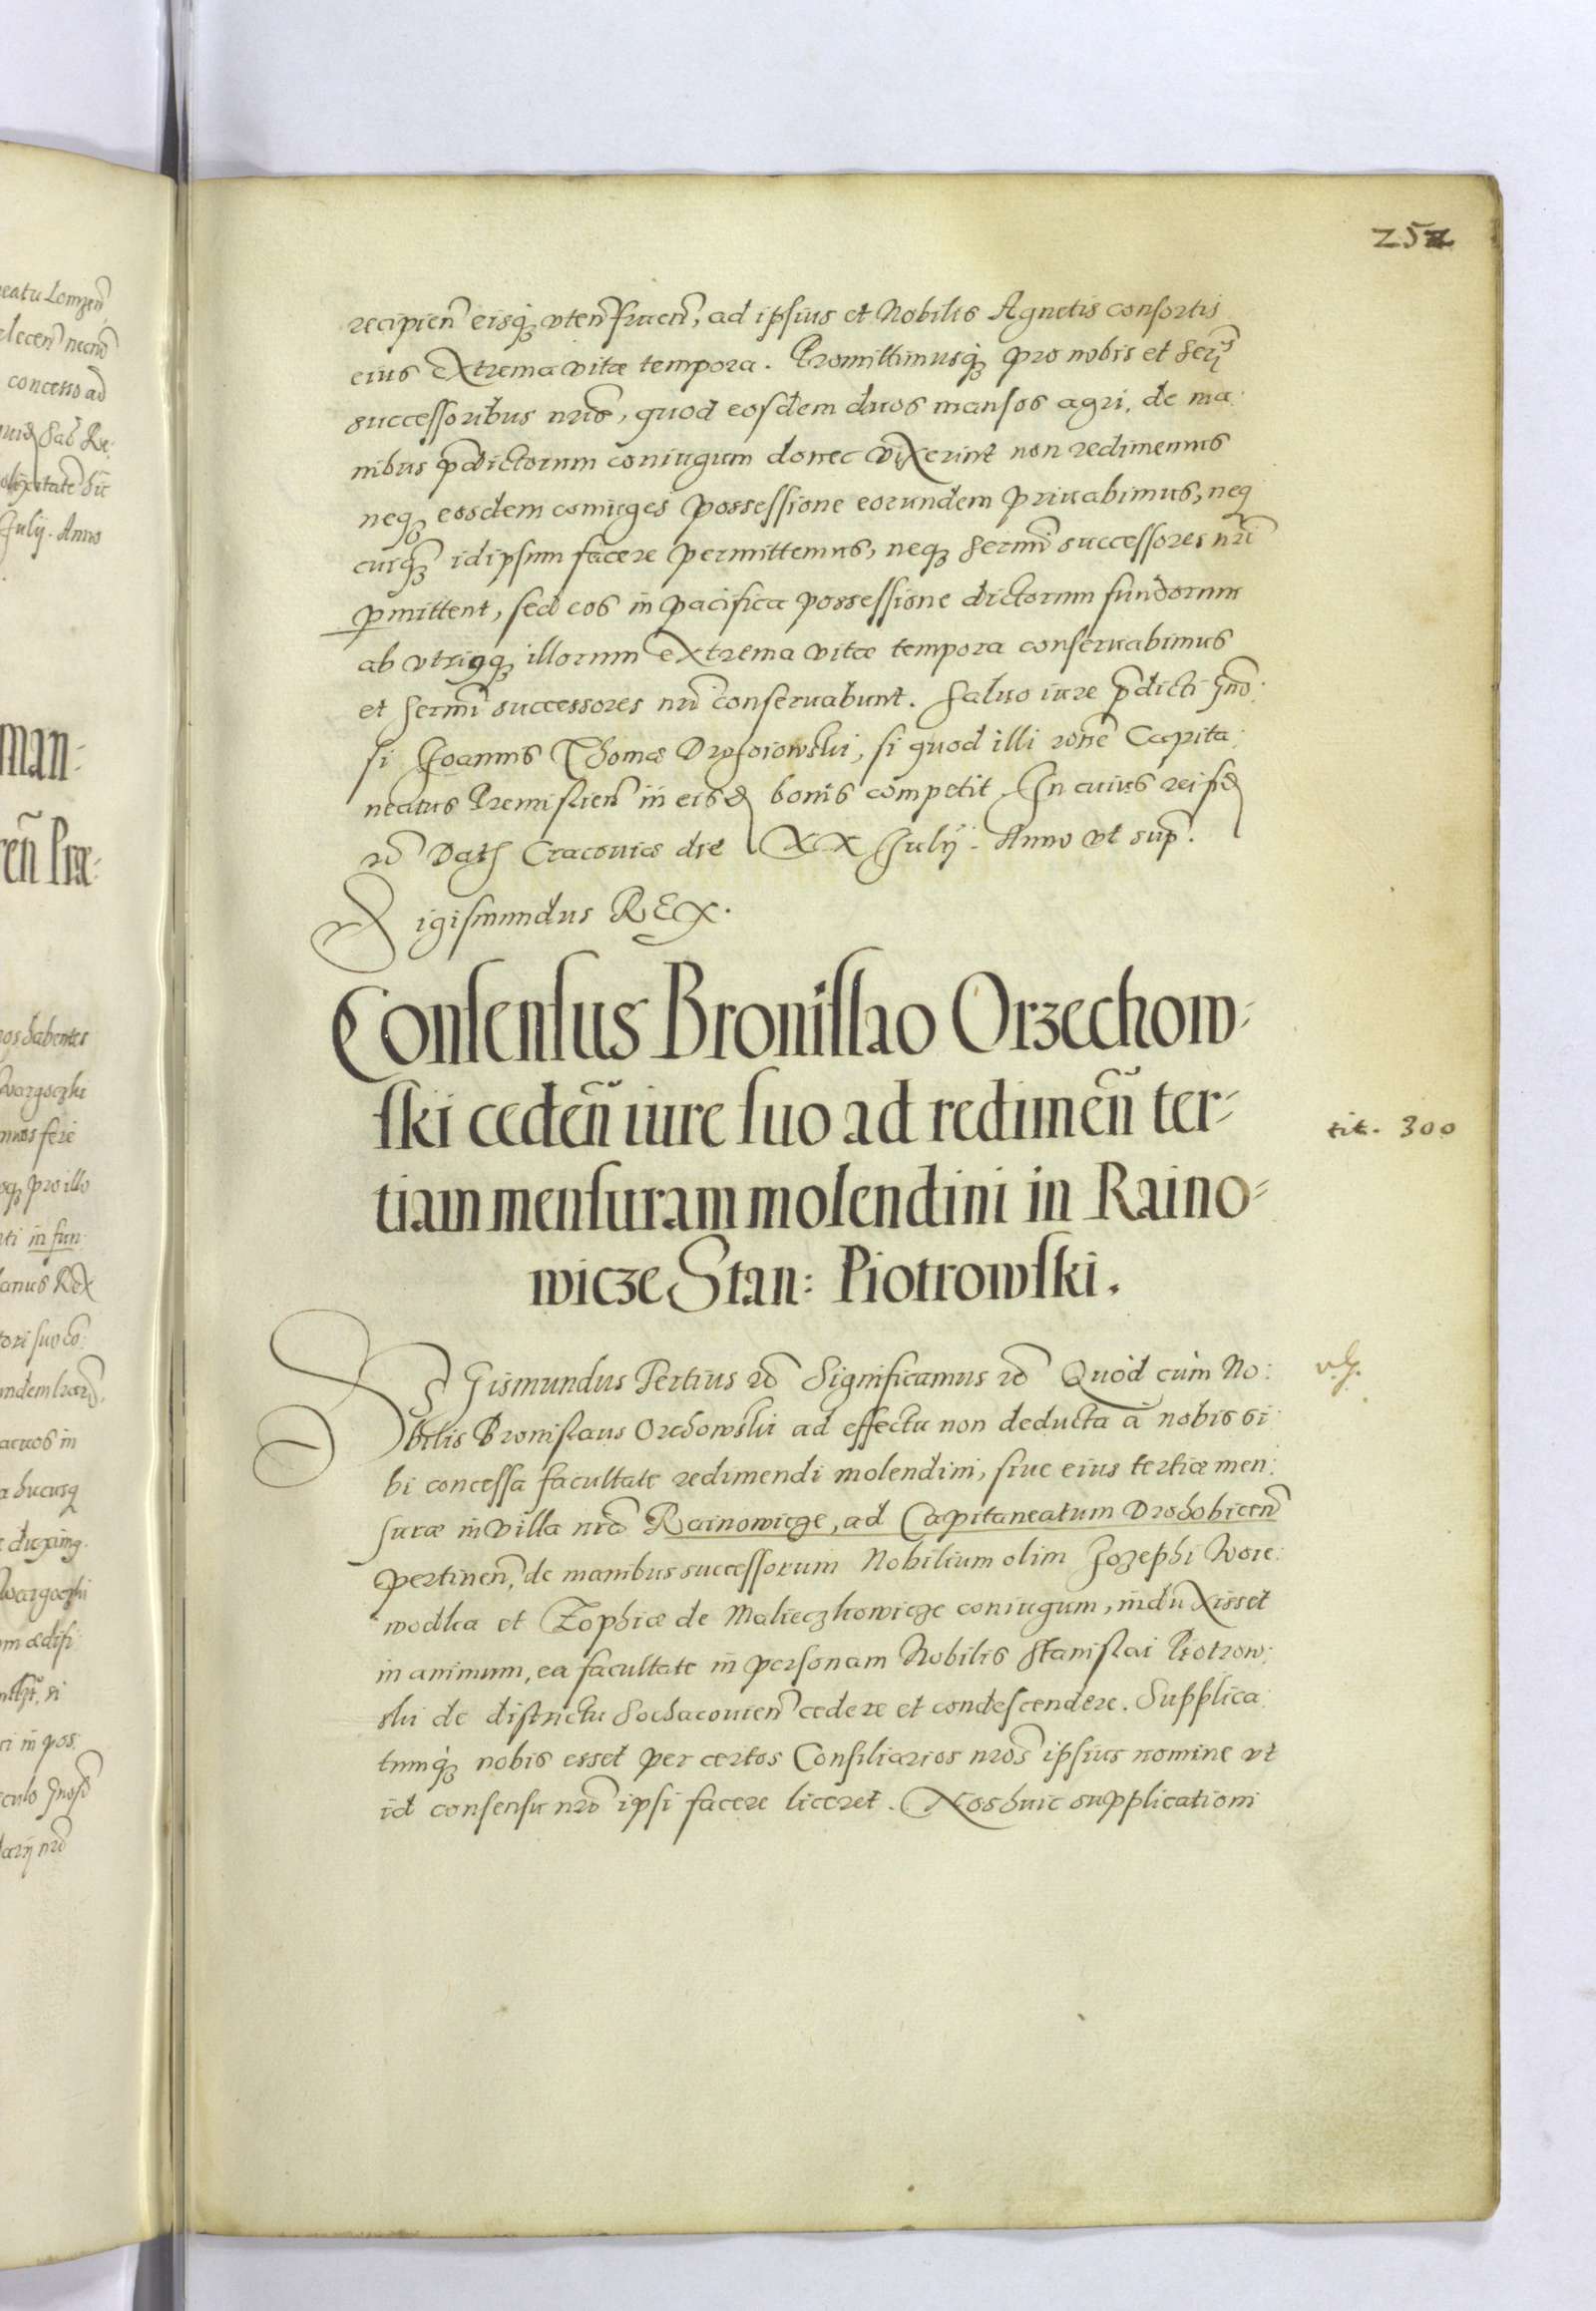 252
recipien̄ eisq́ꝫ vten̄ fruen̄, ad ipsius et Nobilis Agnetis consortis
eius extrema vitæ tempora. Promittimusq́ꝫ pro nobis et Ser:
successoribus nr̄is, quod eosdem duos mansos agri, de ma:
nibus p̄dictorum coniugum donec vixerint non redimemus
neqꝫ eosdem coniuges possessione eorundem priuabimus, neq
cuiq̄ꝫ idipsum facere permittemus, neqꝫ Serm̄i successores nr̄i
ꝑmittent, sed eos in pacifica possessione dictorum fundorum
ab vtriusqꝫ illorum extrema vitæ tempora conseruabimus
et Serm̄i successores nr̄i conseruabunt. Saluo iure p̄dicti Gn̄o:
si Joannis Thomæ Drohoiowski, si quod illi rōne Capita:
neatus Premislien̄ in eisd bonis competit. In cuius rei fid
rc̄ Dat Cracouiæ die XX Julij. Anno vt sup̄.
Sigismundus REX.
Consensus Bronislao Orzechow⸗
ski ceden̄ iure suo ad redimen̄ ter⸗
tiam mensuram molendini in Raino⸗
wicze Stan: Piotrowski.
tit. 300
SIGismundus Tertius rc̄ Significamus rc̄ Quòd cùm No:
bilis Bronislaus Orchowski ad effectu non deducta à nobis si:
bi concessa facultate redimendi molendini, siue eius tertiæ men:
suræ in villa nr̄a Rainowicze, ad Capitaneatum Drohobicen̄
pertinen̄, de manibus successorum Nobilium olim Jozephi Woie:
wodka et Zophiæ de Malieczkowicze coniugum, induxisset
in animum, ea facultate in personam Nobilis Stanislai Piotrow:
ski de districtu Sochacouien̄ cedere et condescendere. Supplica:
tumq́ꝫ nobis esset per certos Consiliarios nr̄os ipsius nomine vt
id consensu nr̄o ipsi facere liceret. Nos huic supplicationi